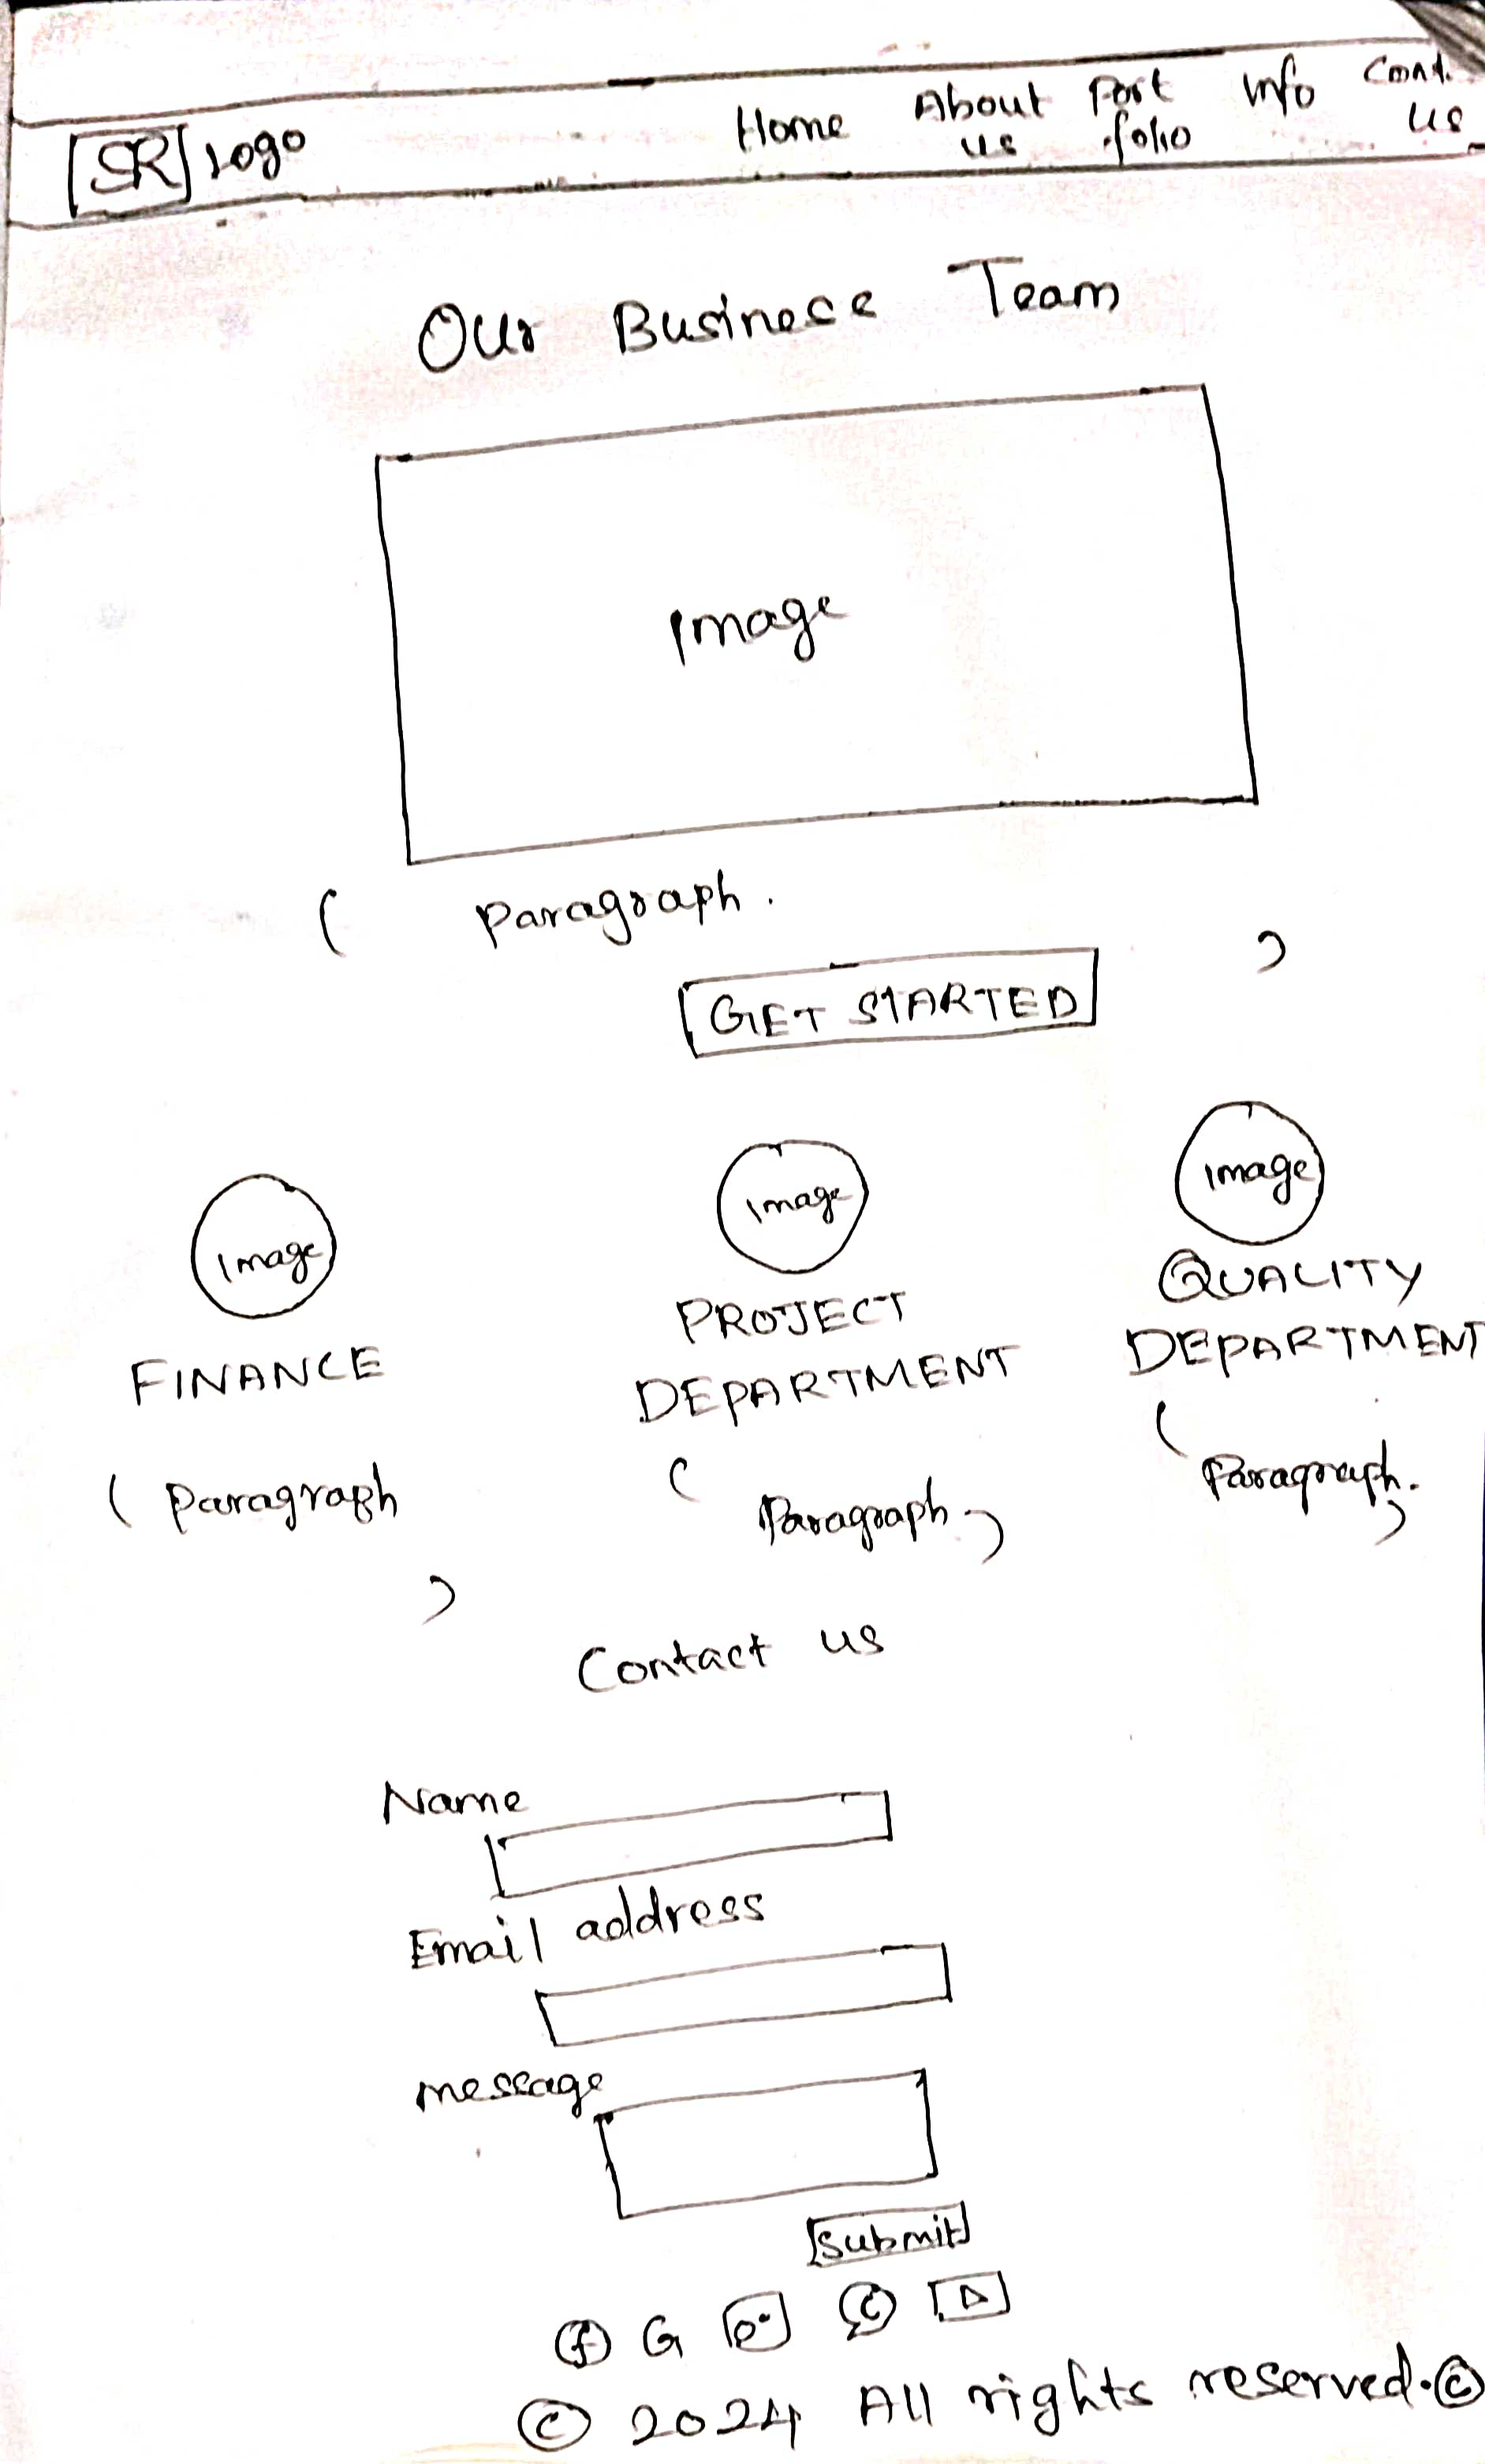 SR Logo Home About us Port folio Info Cont. us
Our Business Team
Image
( Paragraph. )
GET STARTED
Image Image Image
FINANCE PROJECT DEPARTMENT QUALITY DEPARTMENT
( Paragraph ) ( Paragraph ) ( Paragraph. )
Contact us
Name
Email address
message
Submit
f G
© 2024 All rights reserved. ©